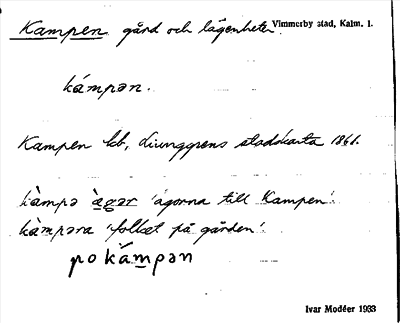 Kampen gård och lägenheter. Vimmerby stad, Kalm. l.
kámpən.
Kampen lb, Ljunggrens stadskarta 1861.
kàmpə àgər 'ägorna till Kampen'.
kàmpəra 'folket på gården'.
po kámpən
Ivar Modéer 1933